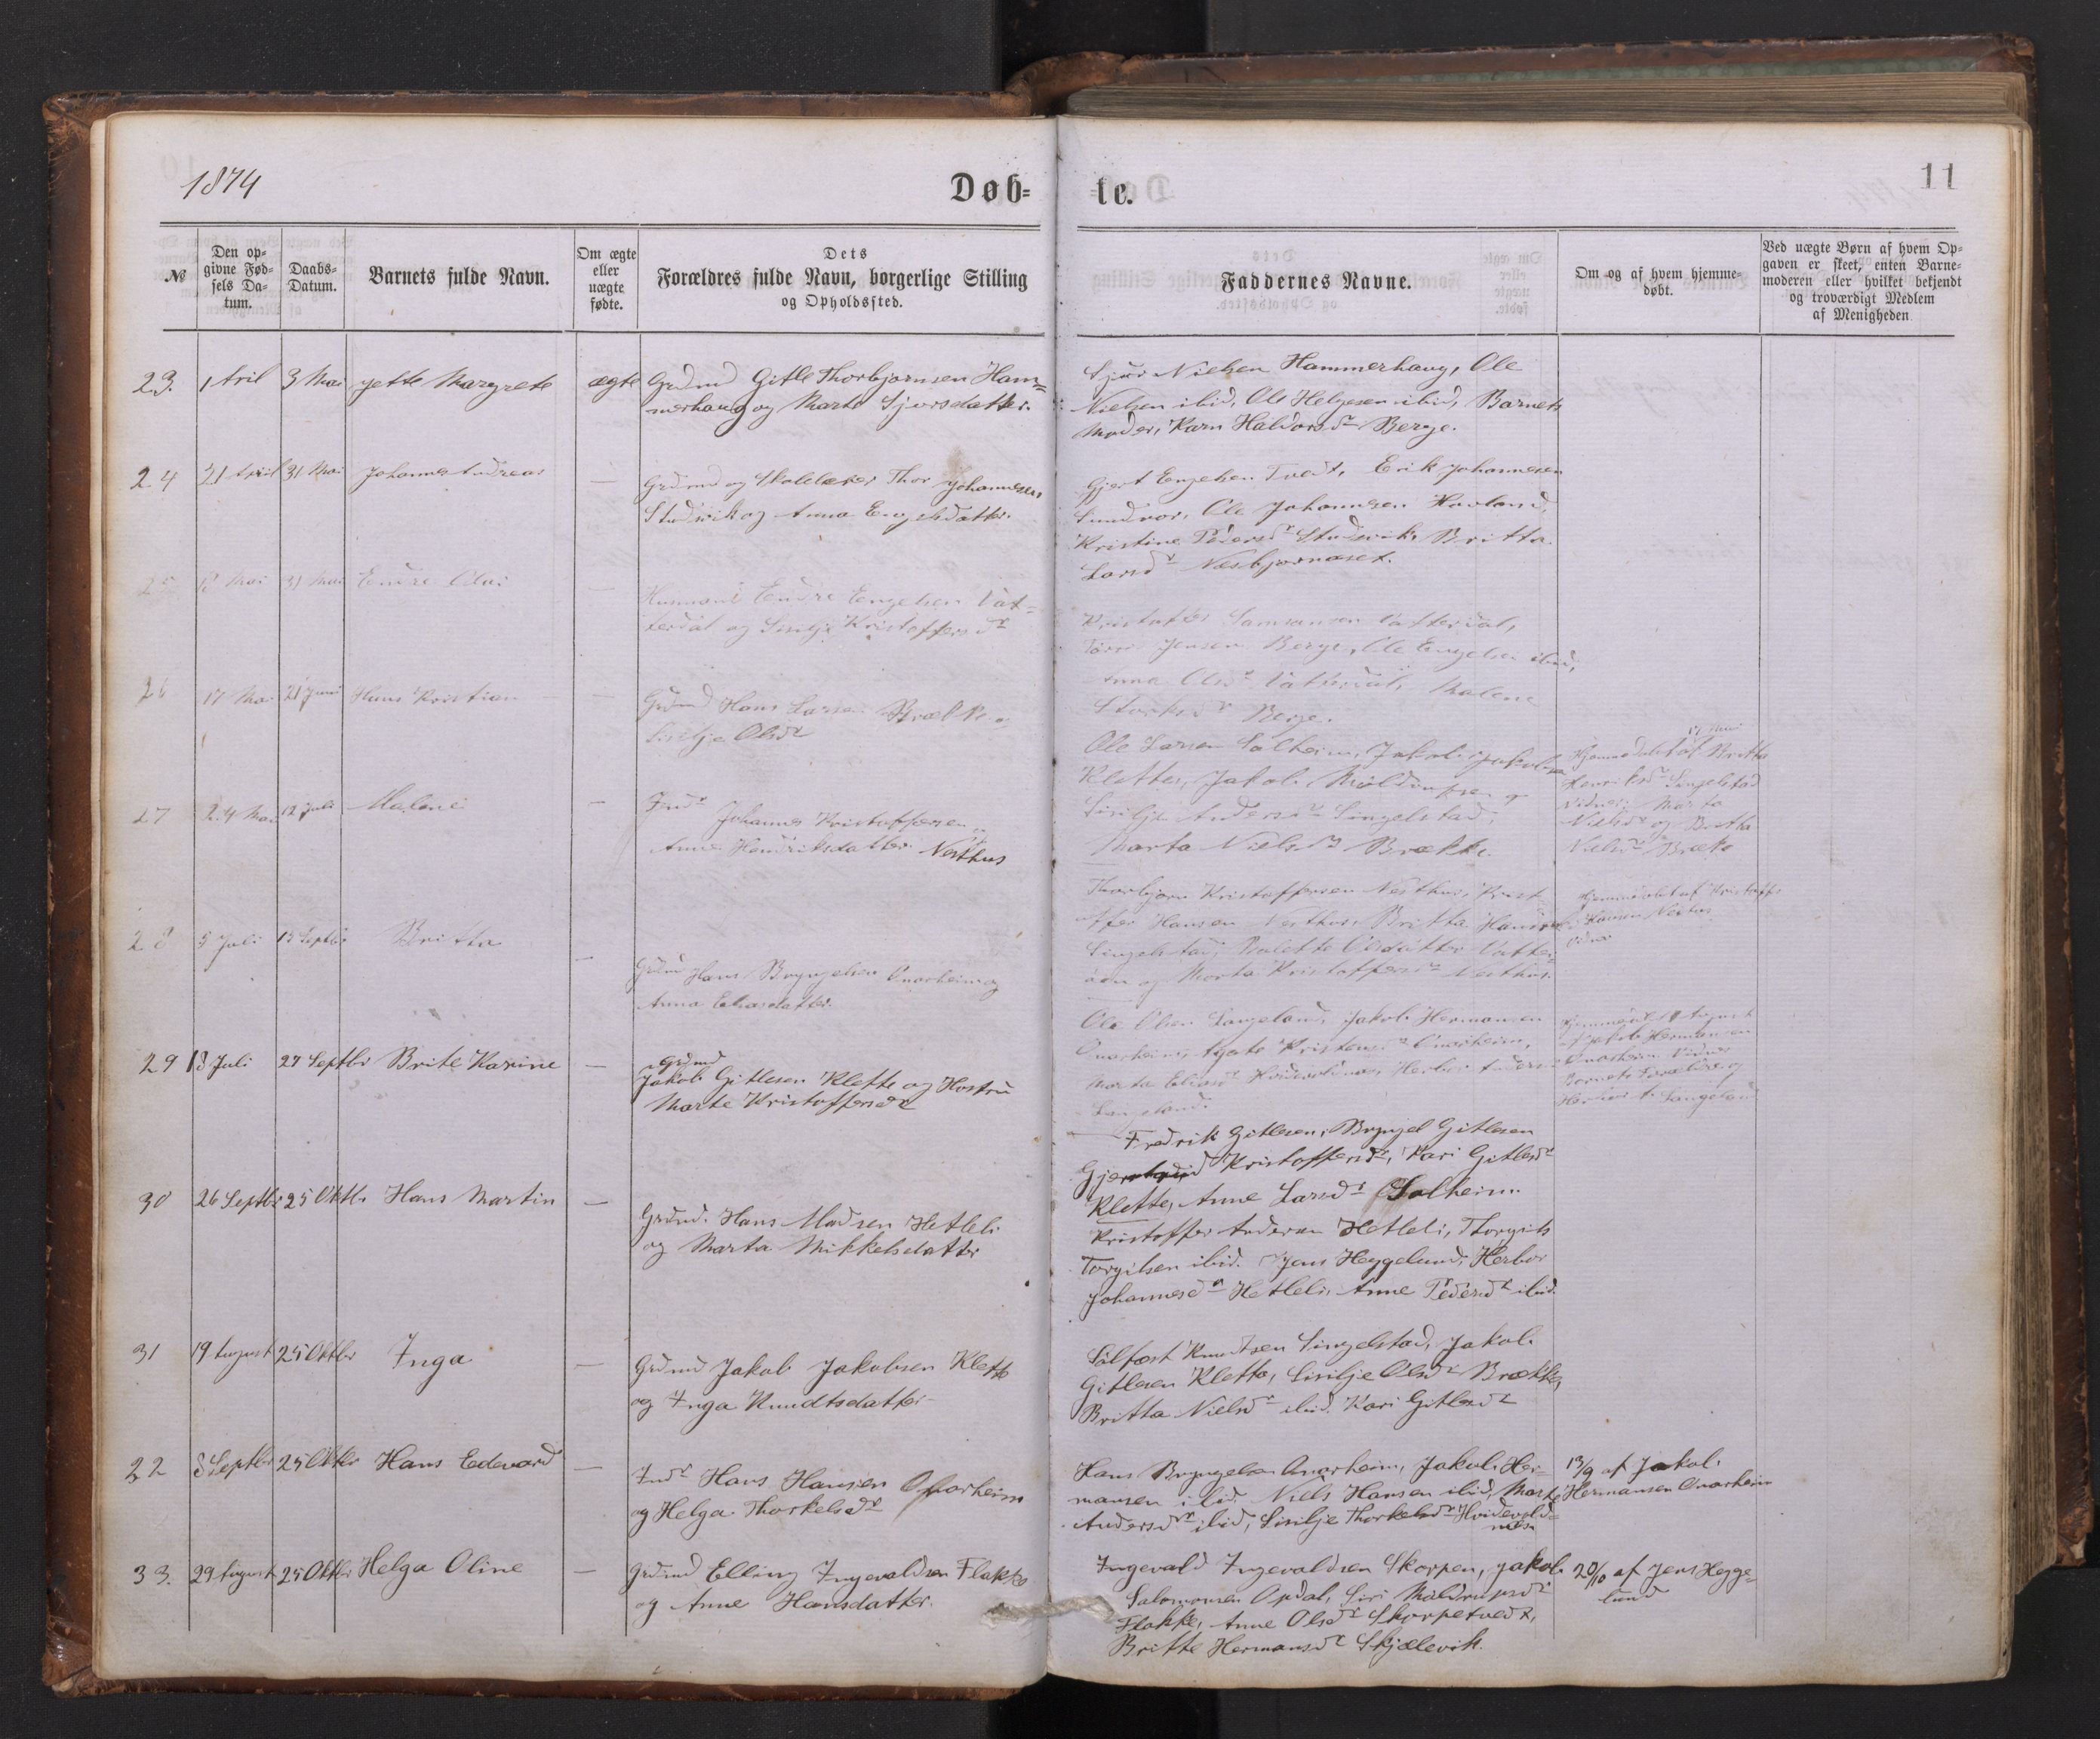 1874
Døb-
te.
11
№
Den op-
givne Fød-
sels Da-
tum.
Daabs-
Datum.
Barnets fulde Navn.
Om ægte
eller
uægte
fødte.
Dets
Forældres fulde Navn, borgerlige Stilling
og Opholdssted.
Faddernes Navne.
Om og af hvem hjemme-
døbt.
Ved uægte Børn af hvem Op-
gaven er skeet, enten Barne-
moderen eller hvilket bekjendt
og troværdigt Medlem
af Menigheden
23. 1 Aril 3 Mai Jette Margrete ægte Grdmd Gitle Thorbjørnsen Ham-
merhaug og Marte Sjursdatter.
Sjur Nielsen Hammerhaug, Ole
Nielsen ibid, Ole Helgesen ibid, Barnets
Moder, Karn Haldorsdr Berge.
24 21 April 31 Mai Johannes Andreas — Grdmd og Skolelærer Thor Johannesen
Studvik og Anna Engelsdatter.
Gjert Engelsen Tvedt, Erik Johannesen
Sundvor, Ole Johannesen Havland,
Kristine Pedersdr Studevik, Britta
Larsdr Næsbjørnæset.
25 13 Mai 31 Mai Endre Olai — Husmand Endre Engelsen Vat-
terdal og Sisilje Kristoffersdr
Kristoffer Samsonsen Vatterdal,
Jensen Berge, Ole Engelsen ibid,
Anna Olsdr Vatterdal, Malene
Berge.
26 17 Mai 21 Juni Hans Kristian — Grdmd Hans Larsen Brække og
Sisilje Olsdr
Ole Larsen Salheim, Jakob Jakobsen
Klette, Jakob og
Sisilje Andersdr Singelstad,
Marta Nielsdr Brække.
Hjemmedøbt af Britta
Henriksdr Singelstad
Vidner Marta
Nielsdr og Britta
Nielsdr Brække
27 24 Mai 12 Juli Malene — Indr
Johannes Kristoffersen og
Anna Hendriksdatter Nesthus
Thorbjørn Kristoffersen Nesthus, Krist-
offer Hansen Nesthus, Britta
Singelstad, Olsdatter
og Marta Kristoffersdr Nesthus.
Hjemmedøbt af Kristoffer
Hansen Nesthus
28 5 Juli 13 Septbr Britta — Grdmd Hans Brynjelsen Onarheim og
Anna Eliasdatter.
Ole Olsen Langeland, Jakob Hermansen
Onarheim, Agate Kristensdr Onarheim,
Marta Eliasdr Herbor
Langeland.
Hjemmedøbt August
af Jakob Hermansen
Onarheim Vidner
Barnets Forældre og
Herbor A. Langeland
29 13 Juli 27 Septbr Brite Karine — Grdmd
Jakob Gitlesen Klette og Hustru
Marte Kristoffersdr
Fredrik Gitlesen, Brynjel Gitlesen
Kristoffersdr, Kari Gitlesdr
Klette, Anne Larsdr Salheim.
30 26 Septbr 25 Oktbr Hans Martin — Grdmd. Hans Madsen Hetleli
og Marta Mikkelsdatter
Kristoffer Andersen Hetleli, Thorgils
Torgilsen ibid. Jens Heggelund, Herbor
Johannesdr Hetleli, Anne Pedersdr ibid.
31 19 August 25 Oktbr Inga — Grdmd Jakob Jakobsen Klette
og Inga Knudtsdatter
Salfæst Knudtsen Singelstad, Jakob
Gitlesen Klette, Sisilje Olsdr Brække,
Britta Nielsdr ibid. Kari Gitlesdr
22 8 Septbr 25 Oktbr Hans Edevard — Indr Hans Hansen Onarheim
og Helga Thorkelsdr
Hans Brynjelsen Onarheim, Jakob Her-
mansen ibid, Niels Hansen ibid, Marta
Andersdr ibid, Sisilje Thorkelsdr Hvidevolds-
næs
13/9 af Jakob
Hermansen Onarheim
33. 29 August 25 Oktbr Helga Oline — Grdmd Elling Ingevaldsen Flakke
og Anne Hansdatter.
Ingevald Ingevaldsen Skorpen, Jakob
Salomonsen Opdal, Siri
Flakke, Anne Olsdr Skorpetvedt,
Britte Hermansdr Skjælevik.
20/10 af Jens Hegge-
lund